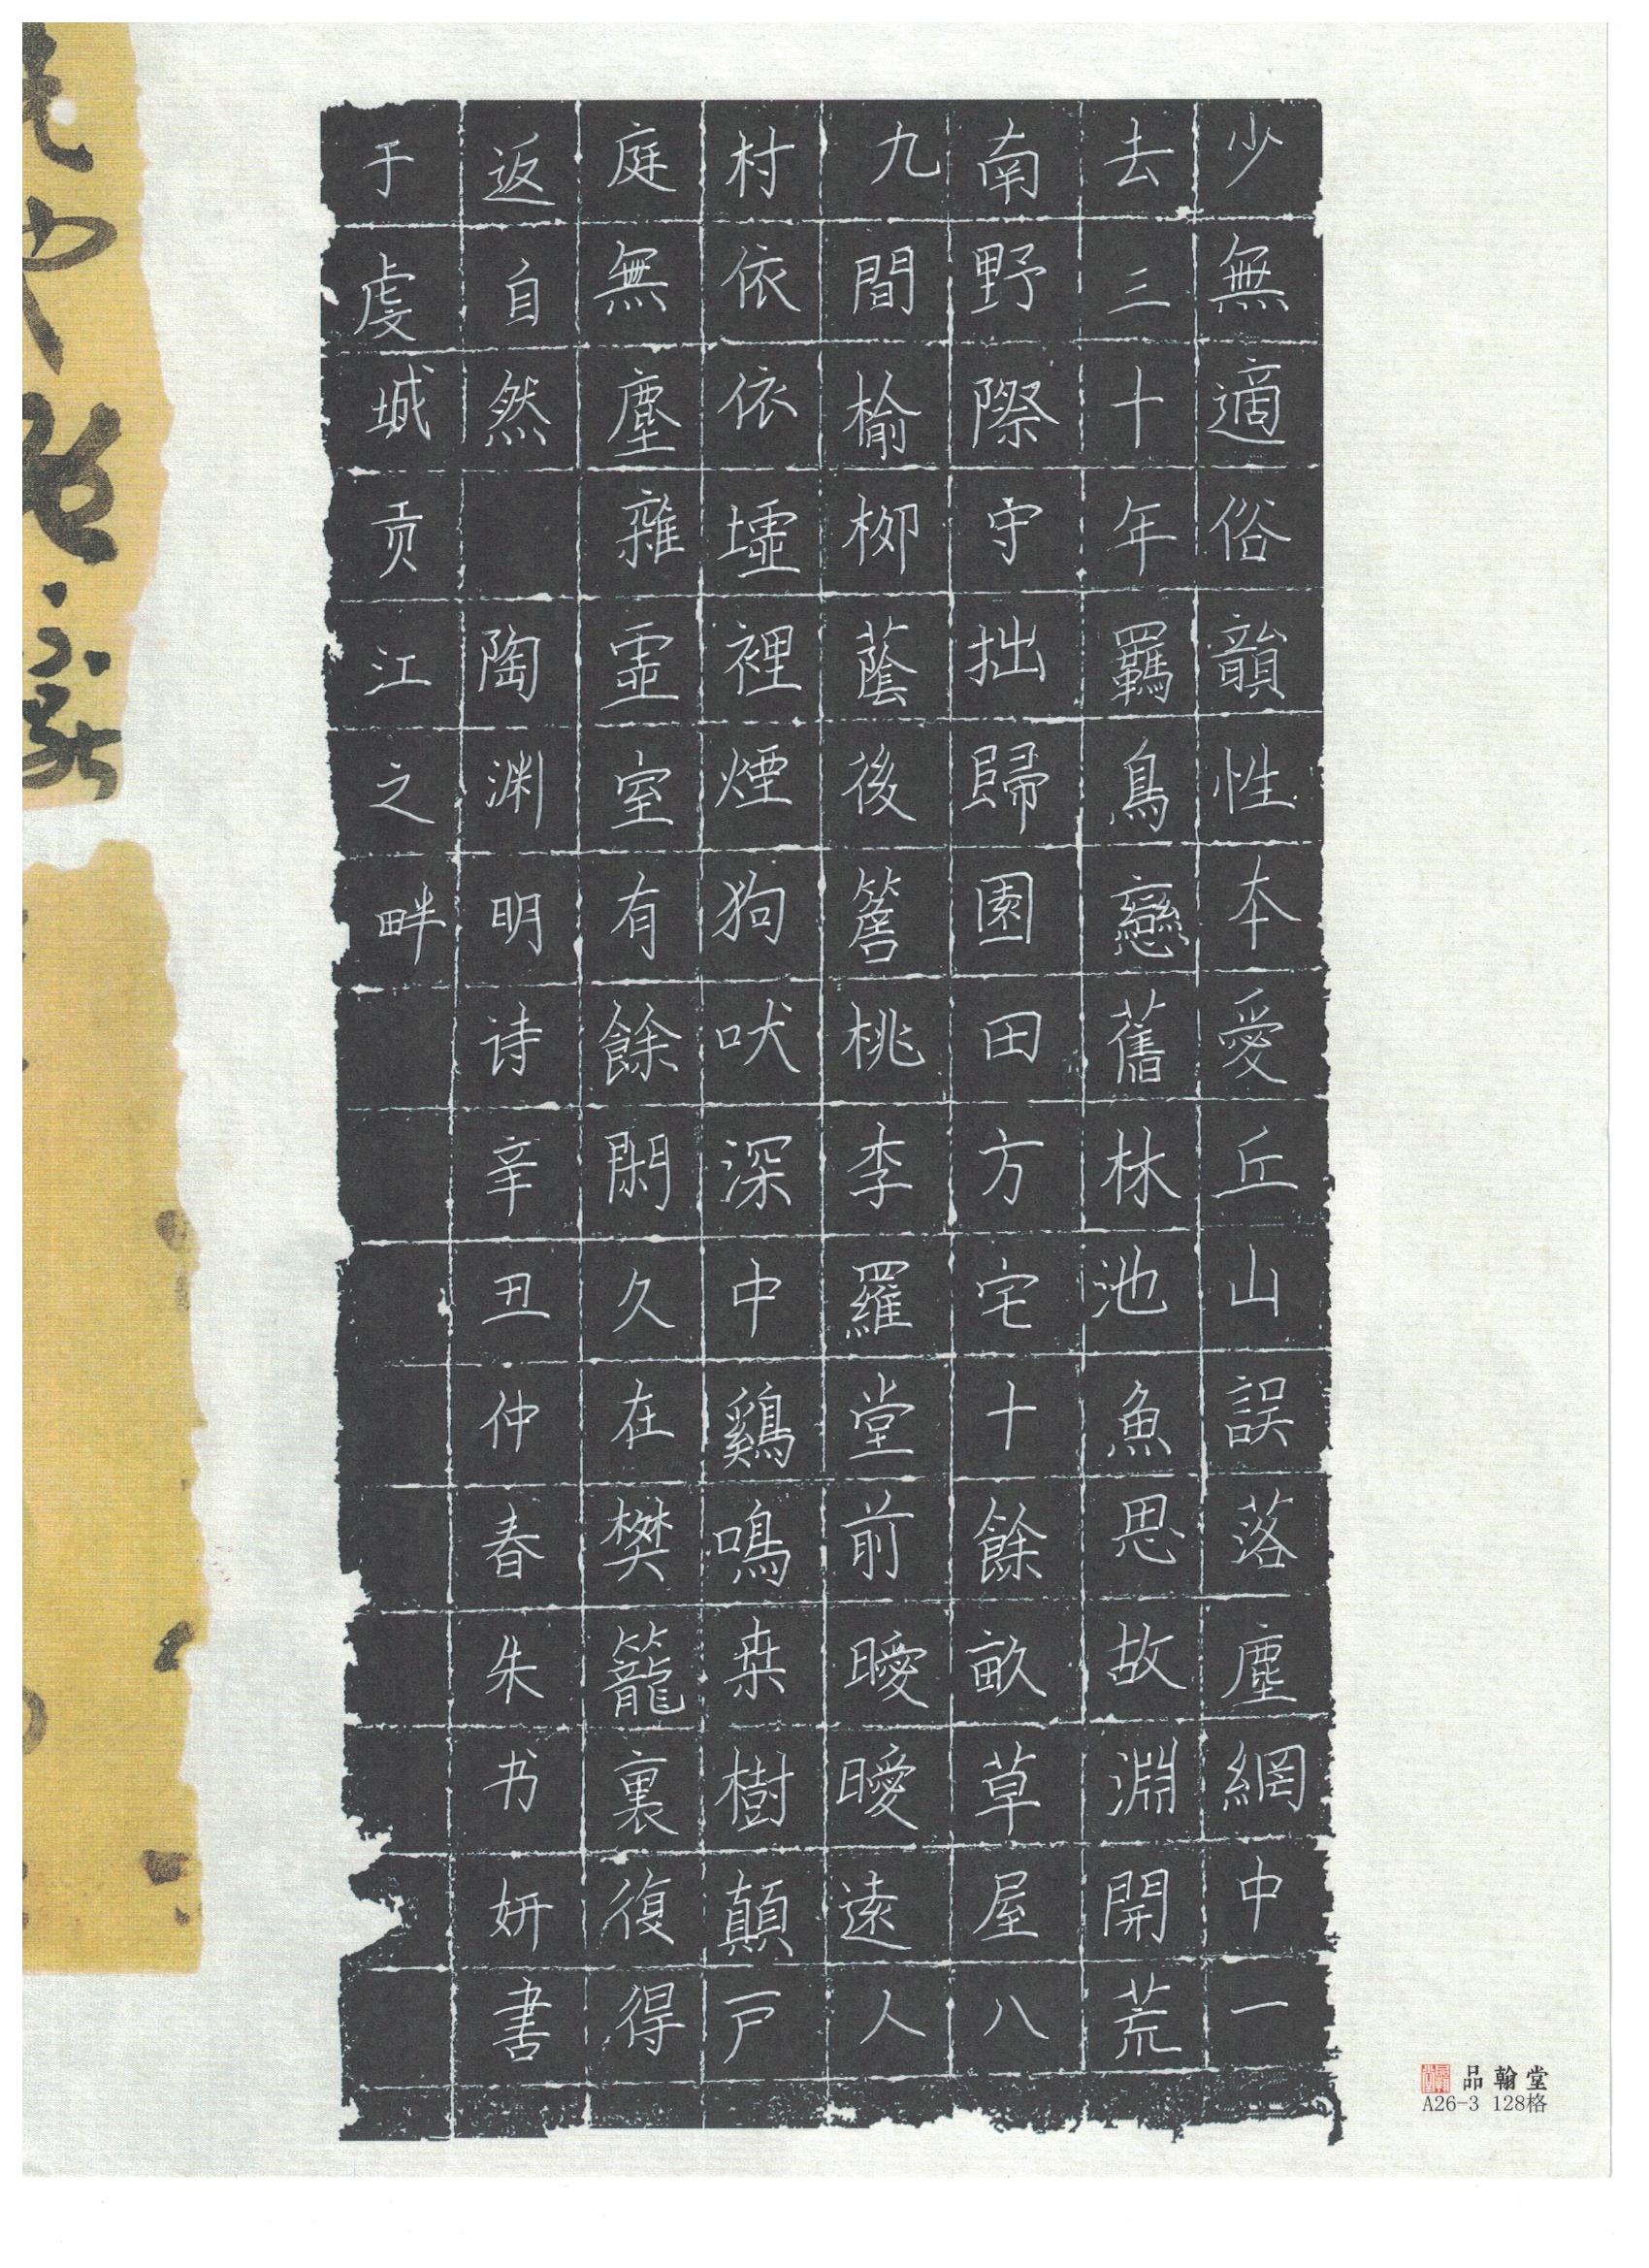 少無適俗韻性本愛丘山誤落塵網中一
去三十年羈鳥戀舊林池魚思故淵開荒
南野際守拙歸園田方宅十餘畝草屋八
九間榆柳蔭後簷桃李羅堂前曖曖遠人
村依依墟裡煙狗吠深中鷄鳴桒樹顛戶
庭無塵雜虛室有餘閒久在樊籠裏復得
返自然 陶渊明诗辛丑仲春朱书妍書
于虔城贡江之畔
品翰堂
A26-3 128格